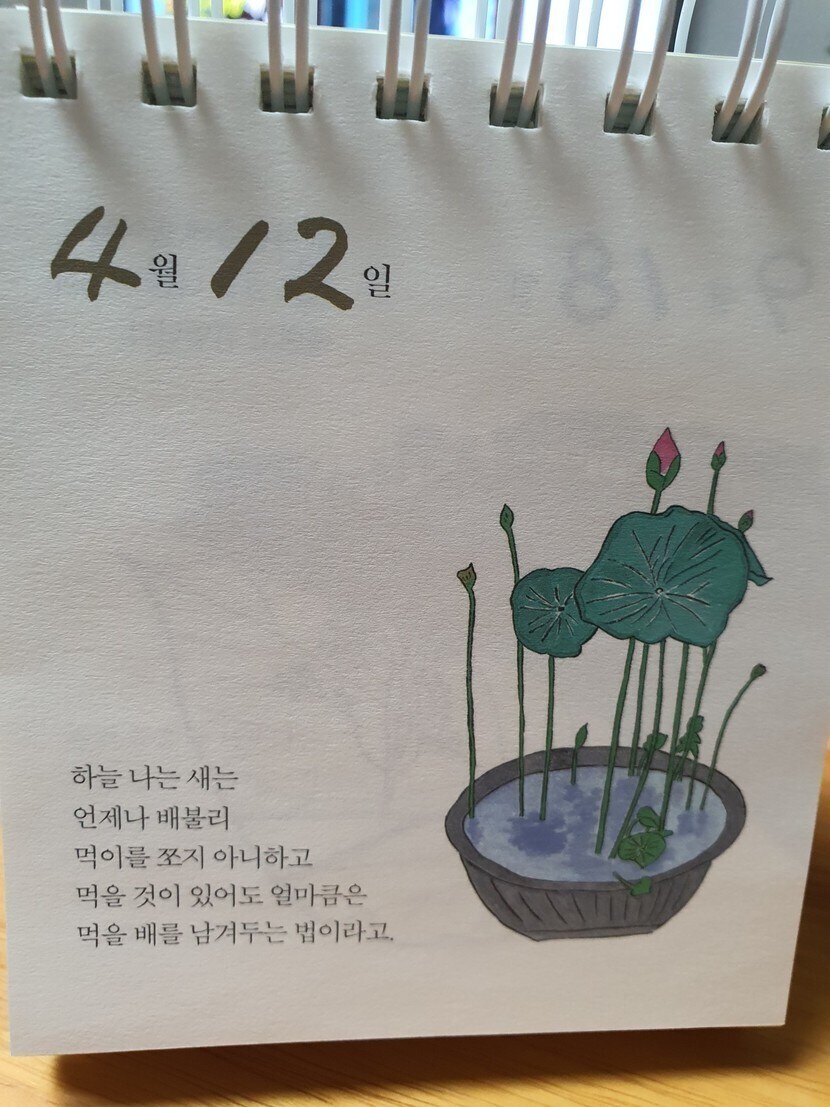 4월 12일
하늘 나는 새는
언제나 배불리
먹이를 쪼지 아니하고
먹을 것이 있어도 얼마큼은
먹을 배를 남겨두는 법이라고.